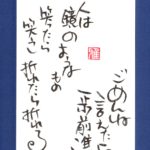 ごめんね
言えたら
一歩前進
人は
鏡のような
もの
笑ったら
笑い
折れたら折れる